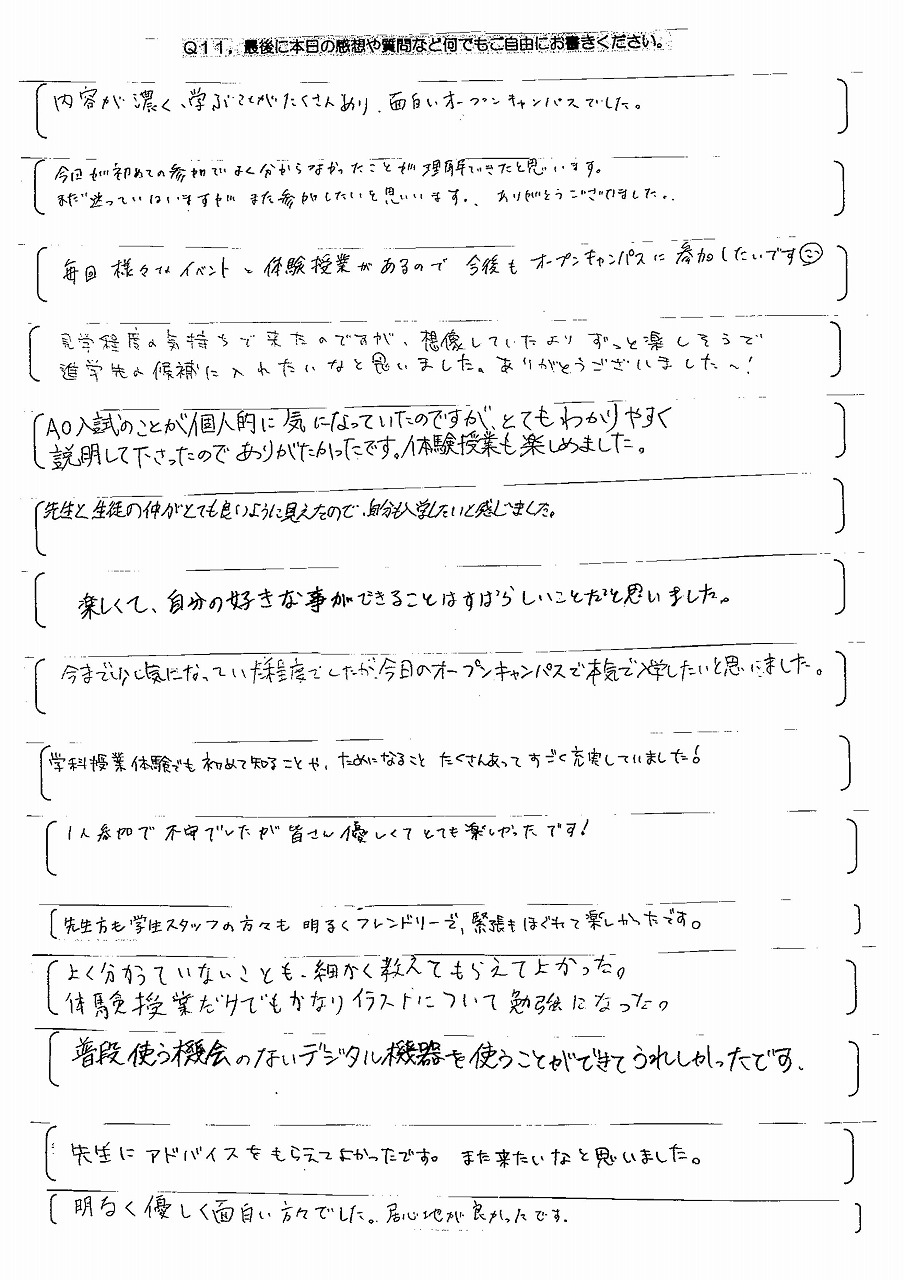 Q11，最後に本日の感想や質問など何でもご自由にお書きください。
内容が濃く、学ぶことがたくさんあり、面白いオープンキャンパスでした。
今回が初めての参加でよく分からなかったことが理解できたと思います。
まだ迷ってはいますがまた参加したいと思います。、ありがとうございました。
毎回 様々なイベントと体験授業があるので 今後もオープンキャンパスに参加したいです
見学程度の気持ちで来たのですが、想像していたよりずっと楽しそうで
進学先の候補に入れたいなと思いました。ありがとうございました〜！
AO入試のことが個人的に気になっていたのですが、とてもわかりやすく
説明して下さったのでありがたかったです。体験授業も楽しめました。
先生と生徒の仲がとても良いように見えたので、自分も入学したいと感じました。
楽しくて、自分の好きな事ができることはすばらしいことだと思いました。
今まで少し気になっていた程度でしたが、今日のオープンキャンパスで本気で入学したいと思いました。
学科授業体験でも初めて知ることや、ためになることたくさんあってすごく充実していました！
1人参加で不安でしたが皆さん優しくてとても楽しかったです！
先生方も学生スタッフの方々も明るくフレンドリーで、緊張もほぐれて楽しかったです。
よく分かっていないことも、細かく教えてもらえてよかった。
体験授業だけでもかなりイラストについて勉強になった。
普段使う機会のないデジタル機器を使うことができてうれしかったです、
先生にアドバイスをもらえてよかったです。また来たいなと思いました。
明るく優しく面白い方々でした。居心地が良かったです.